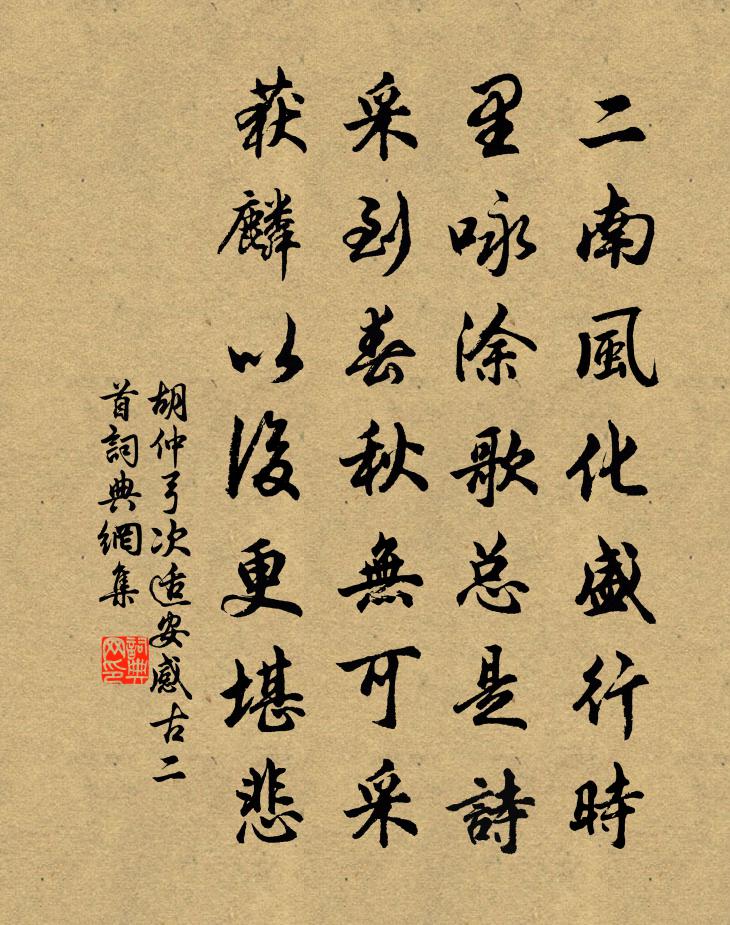 二南風化盛行時
里咏涂歌总是詩
采到春秋無可采
获麟以後更堪悲
胡仲弓次适安感古二
首詞典網集
詞典网印